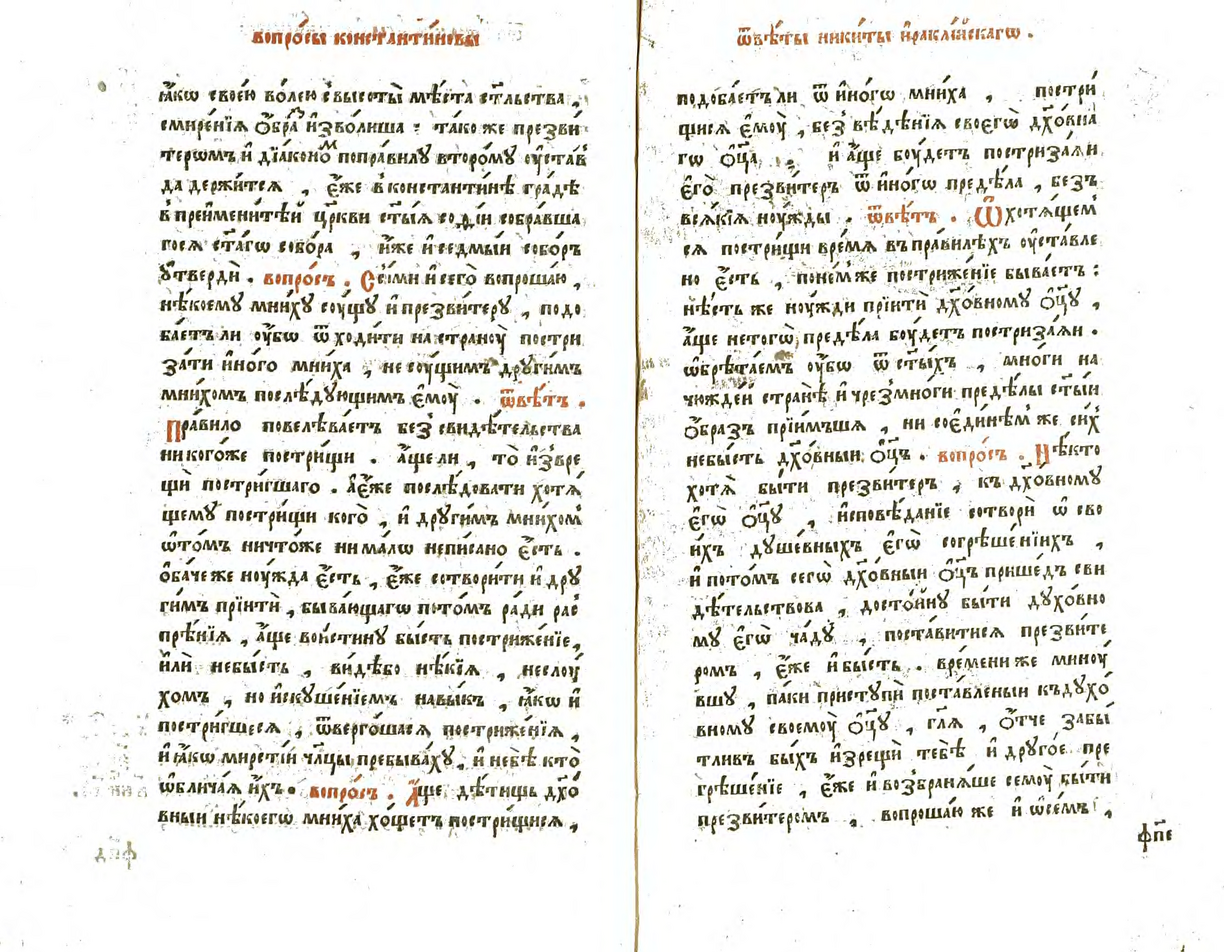 вопро́сы константи́новы
ꙗ҆́кѡ свое́ю во́лею с̾высоты̀ мѣ́ста ст҃льства ,
смире́нїѧ ѻ҆́бра̑ и҆зво́лиша : та́ко же презви́
терѡмъ и҆ дїа́коно̑м поправилꙋ̀ второ́мꙋ оу҆ста́в
да держи́тсѧ , є҆́же в константи́нѣ гра́дѣ
в преи҆мени́тѣй цр҃кви ст҃ы́ѧ со́фїи собра́вша
госѧ ст҃а́гѡ собо́ра , и҆́же и҆ седмы́и собо́ръ
ᲂу҆твердѝ . вопро́съ . Сси́ми и҆ сего̀ вопрошаю̀ ,
нѣ́коемꙋ мни́хꙋ сꙋ́щꙋ и҆ презви́терꙋ , подо
ба́етъ ли оу҆́бѡ ѿ ходи́ти на странꙋ̀ постри
за́ти и҆но́го мни́ха , не сꙋ́щимъ дрꙋги́мъ
мни́хомъ послѣ́дꙋющимъ є҆мꙋ̀ . ѿвѣ́тъ .
Пра́вило повелѣва́етъ без̾ свидѣ́тельства
никого́же постри́щи . а҆́ще ли , то̀ и҆з̾вре
щѝ постри́гшаго . А҆є҆́же послѣ́довати хотѧ́
щемꙋ постри́щи кого̀ , и҆ дрꙋги́мъ мни́хом̾
ѡ҆то́мъ ничто́же ни ма́лѡ непи́сано є҆́сть .
ѻ҆ба́че же нꙋ́жда є҆́сть , є҆́же сотвори́ти и҆ дрꙋ
ги́мъ прїитѝ , быва́ющагѡ пото́мъ ра́ди рас̾
прѣ́нїѧ , а҆́ще вои́стинꙋ бы́сть постриже́нїе ,
и҆лѝ небы́сть , ви́дѣ бо нѣ́кїѧ , неслꙋ́
хомъ , но и҆скꙋше́нїемъ навы́къ , ꙗ҆́кѡ и҆
постри́гшесѧ , ѿверго́шасѧ постриже́нїѧ ,
и҆ ꙗ҆́кѡ мирсті́и чл҃цы пребыва́хꙋ , и҆ не бѣ̀ кто̀
ѡ҆блича́ѧ и҆́хъ . вопро́съ . А҆́ще дѣ́тищь дх҃о́
вныи нѣ́коегѡ мни́ха хо́щетъ постри́щисѧ ,
фп҃д
ѿвѣ́ты ники́ты и҆ракли́йскагѡ .
подоба́етъ ли ѿ и҆но́гѡ мни́ха , постри́
щисѧ є҆мꙋ̀ , без̾ вѣ́дѣнїѧ своегѡ̀ дх҃о́вна
гѡ ѻ҆ц҃а̀ . и҆ а҆́ще бꙋ́детъ постриза́ѧи
є҆го̀ презви́теръ ѿ и҆но́гѡ предѣ́ла , без̾
всѧ́кїѧ нꙋ́жды . ѿвѣ́тъ . Ѿ хотѧ́щем̾
сѧ постри́щи вре́мѧ въ пра́вилѣхъ оу҆ста́вле
но є҆́сть , поне́м̾же постриже́нїе быва́етъ :
нѣ́сть же нꙋ́жди прїитѝ дх҃о́вномꙋ ѻ҆ц҃ꙋ̀ ,
а҆́ще не тогѡ̀ предѣ́ла бꙋ́детъ постриза́ѧи .
ѡ҆брѣта́емъ оу҆́бѡ ѿ ст҃ы́хъ , мно́ги на
чю́ждей странѣ̀ и҆ чрез̾ мно́ги предѣ́лы ст҃ы́и
ѻ҆́бразъ прїи́мъшѧ , ни соє҆ди́нѣм̾ же си́х̾
небы́сть дх҃о́вныи ѻ҆ц҃ъ . вопро́съ . Нѣ́кто
хотѧ̀ бы́ти презви́теръ , къ дх҃о́вномꙋ
є҆гѡ̀ ѻ҆ц҃ꙋ̀ , и҆сповѣ́данїе сотворѝ ѡ҆ сво
и́хъ дꙋше́вныхъ є҆гѡ̀ согрѣше́нїихъ ,
и҆ пото́мъ сегѡ̀ дх҃о́вныи ѻ҆ц҃ъ прише́дъ сви
дѣ́тельствова , досто́йнꙋ бы́ти дꙋхо́вно
мꙋ є҆гѡ̀ ча́дꙋ , поста́витисѧ презви́те
ромъ , є҆́же и҆ бы́сть . вре́мени же минꙋ́
вшꙋ , па́ки пристꙋпѝ поста́вленыи къ дꙋхо́
вномꙋ своемꙋ̀ ѻ҆ц҃ꙋ̀ , гл҃ѧ , ѻ҆́тче забы́
тливъ бы́хъ и҆зрещѝ тебѣ̀ и҆ дрꙋго́е пре
грѣше́нїе , є҆́же и҆ воз̾бранѧ́ше семꙋ̀ бы́ти
презви́теромъ , вопроша́ю же и҆ ѡ҆се́мъ ,
фп҃е